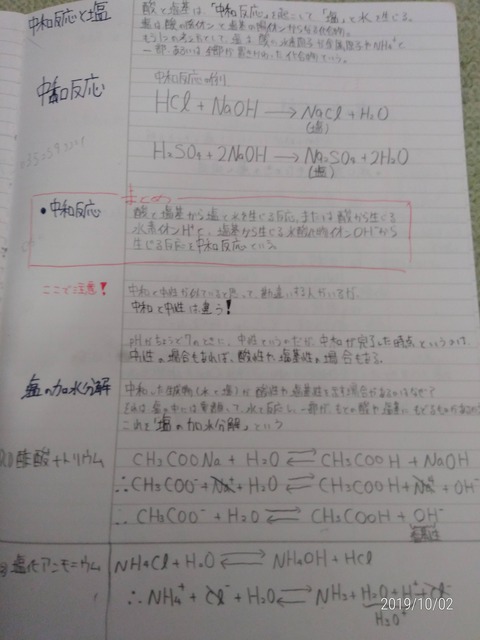 中和反応と塩
酸と塩基は、「中和反応」を起こして「塩」と水を生じる。
塩は酸の陰イオンと塩基の陽イオンからなる化合物。
もう1つの考えとして、塩は、酸の水素原子が金属原子やNH₄⁺と
一部、あるいは全部が置きかわった化合物という。
中和反応
中和反応の例
HCl + NaOH → NaCl + H₂O
(塩)
H₂SO₄ + 2NaOH → Na₂SO₄ + 2H₂O
(塩)
まとめ
・中和反応
酸と塩基から塩と水を生じる反応、または酸から生じる
水素イオンH⁺と、塩基から生じる水酸化物イオンOH⁻から
生じる反応を中和反応という。
ここで注意!
中和と中性が似ていると思って、勘違いする人がいるが、
中和と中性は違う!
pHがちょうど7のときに、中性というのだが、中和が完了した時点というのは、
中性の場合もあれば、酸性や塩基性の場合もある。
塩の加水分解
中和した生成物(水と塩)が酸性や塩基性を示す場合があるのはなぜ?
それは、塩の中には電離して、水と反応し、一部が、もとの酸や塩基にもどるものがあるから
これを「塩の加水分解」という
酢酸ナトリウム
CH₃COONa + H₂O ⇄ CH₃COOH + NaOH
∴ CH₃COO⁻ + Na⁺ + H₂O ⇄ CH₃COOH + Na⁺ + OH⁻
∴ CH₃COO⁻ + H₂O ⇄ CH₃COOH + OH⁻
塩基性
塩化アンモニウム
NH₄Cl + H₂O ⇄ NH₄OH + HCl
∴ NH₄⁺ + Cl⁻ + H₂O ⇄ NH₃ + H₂O + H⁺ + Cl⁻
H₃O⁺
2019/10/02